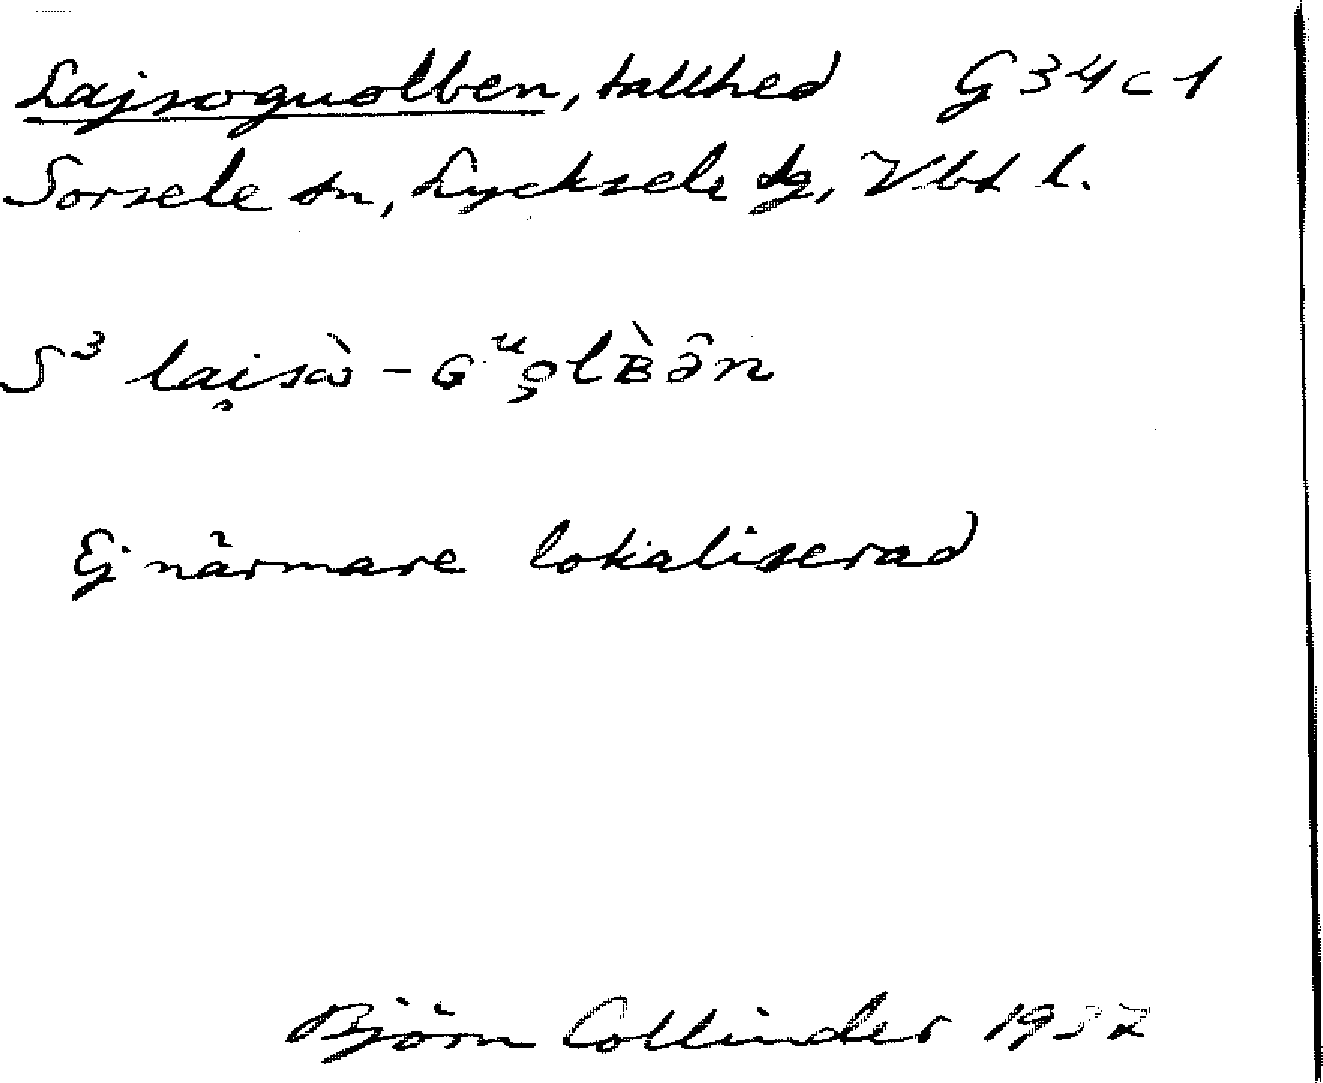 Lajsoguolben, tallhed G 34 c 1
Sorsele sn, Lycksele tg, Vbt l.
S³ lai̯sὼ - GᵘǫlB̀ə̂n
Ej närmare lokaliserad
Björn Collinder 1957